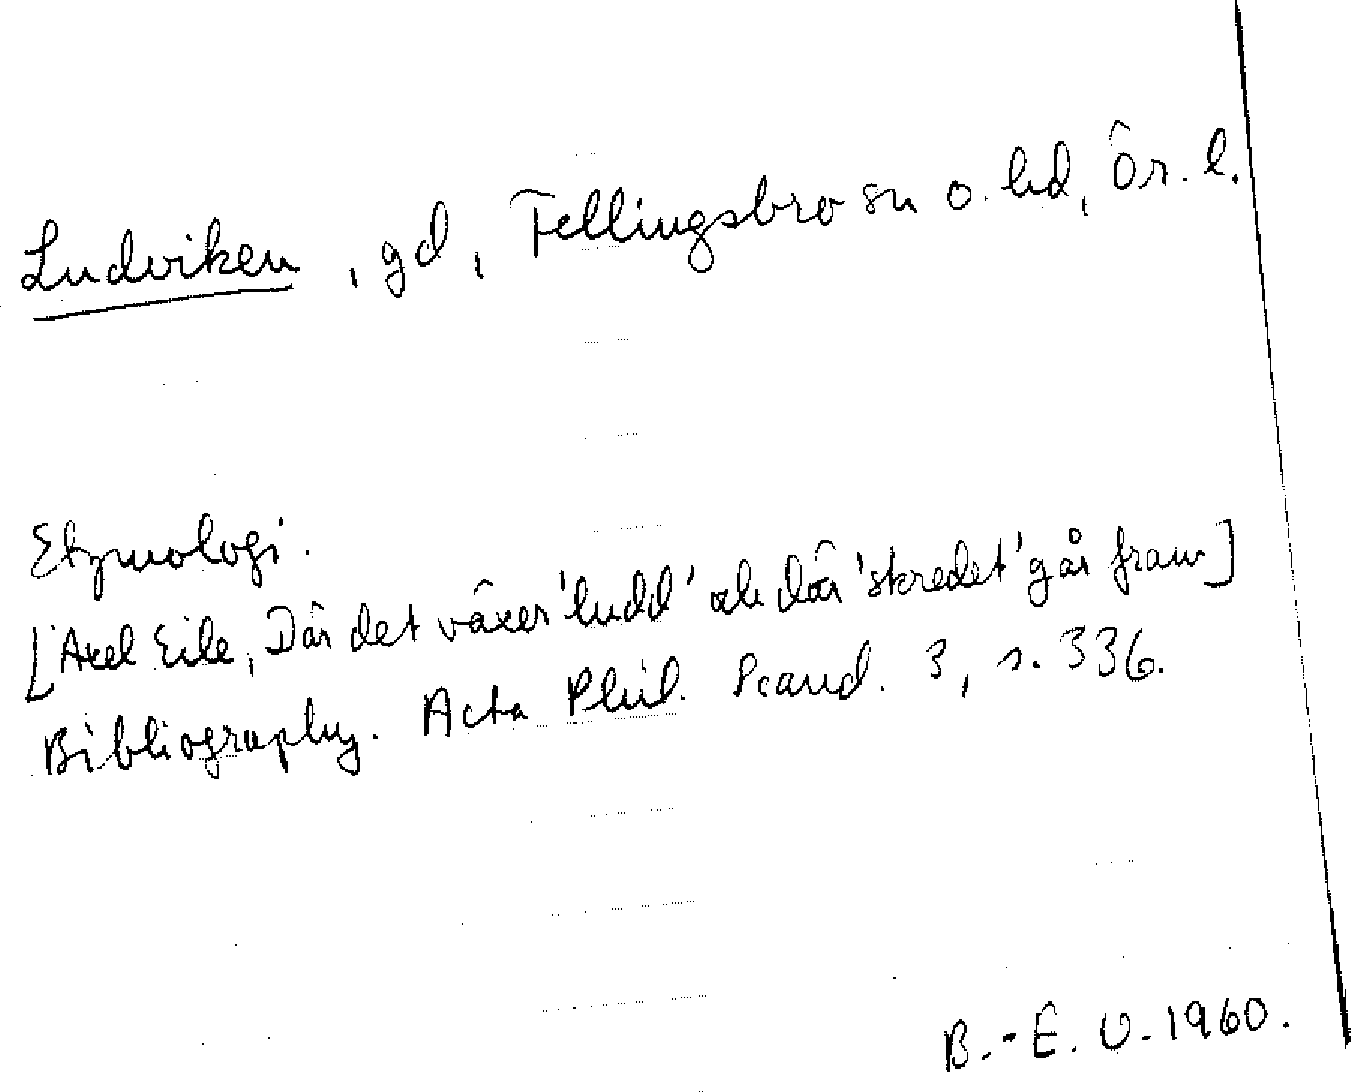 Ludviken, gd, Fellingsbro sn o. hd, Ör. l.
Etymologi.
[Axel Eile, Där det växer 'ludd' och där 'skredet' går fram]
Bibliography. Acta Phil. Scand. 3, s. 336.
B.-E. O. 1960.